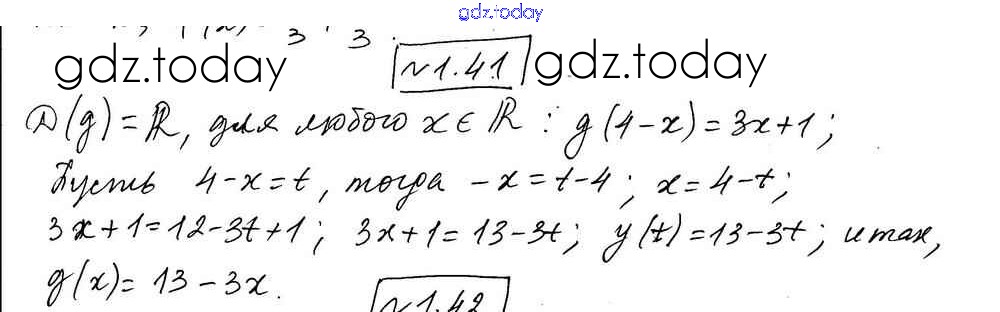 gdz.today
3 3.
gdz.today №1.41 gdz.today
D(g) = R, для любого x ∈ R : g(4-x) = 3x+1;
Пусть 4-x=t, тогда -x=t-4; x=4-t;
3x+1=12-3t+1; 3x+1=13-3t; y(t)=13-3t; итак,
g(x)= 13-3x.
№1.42